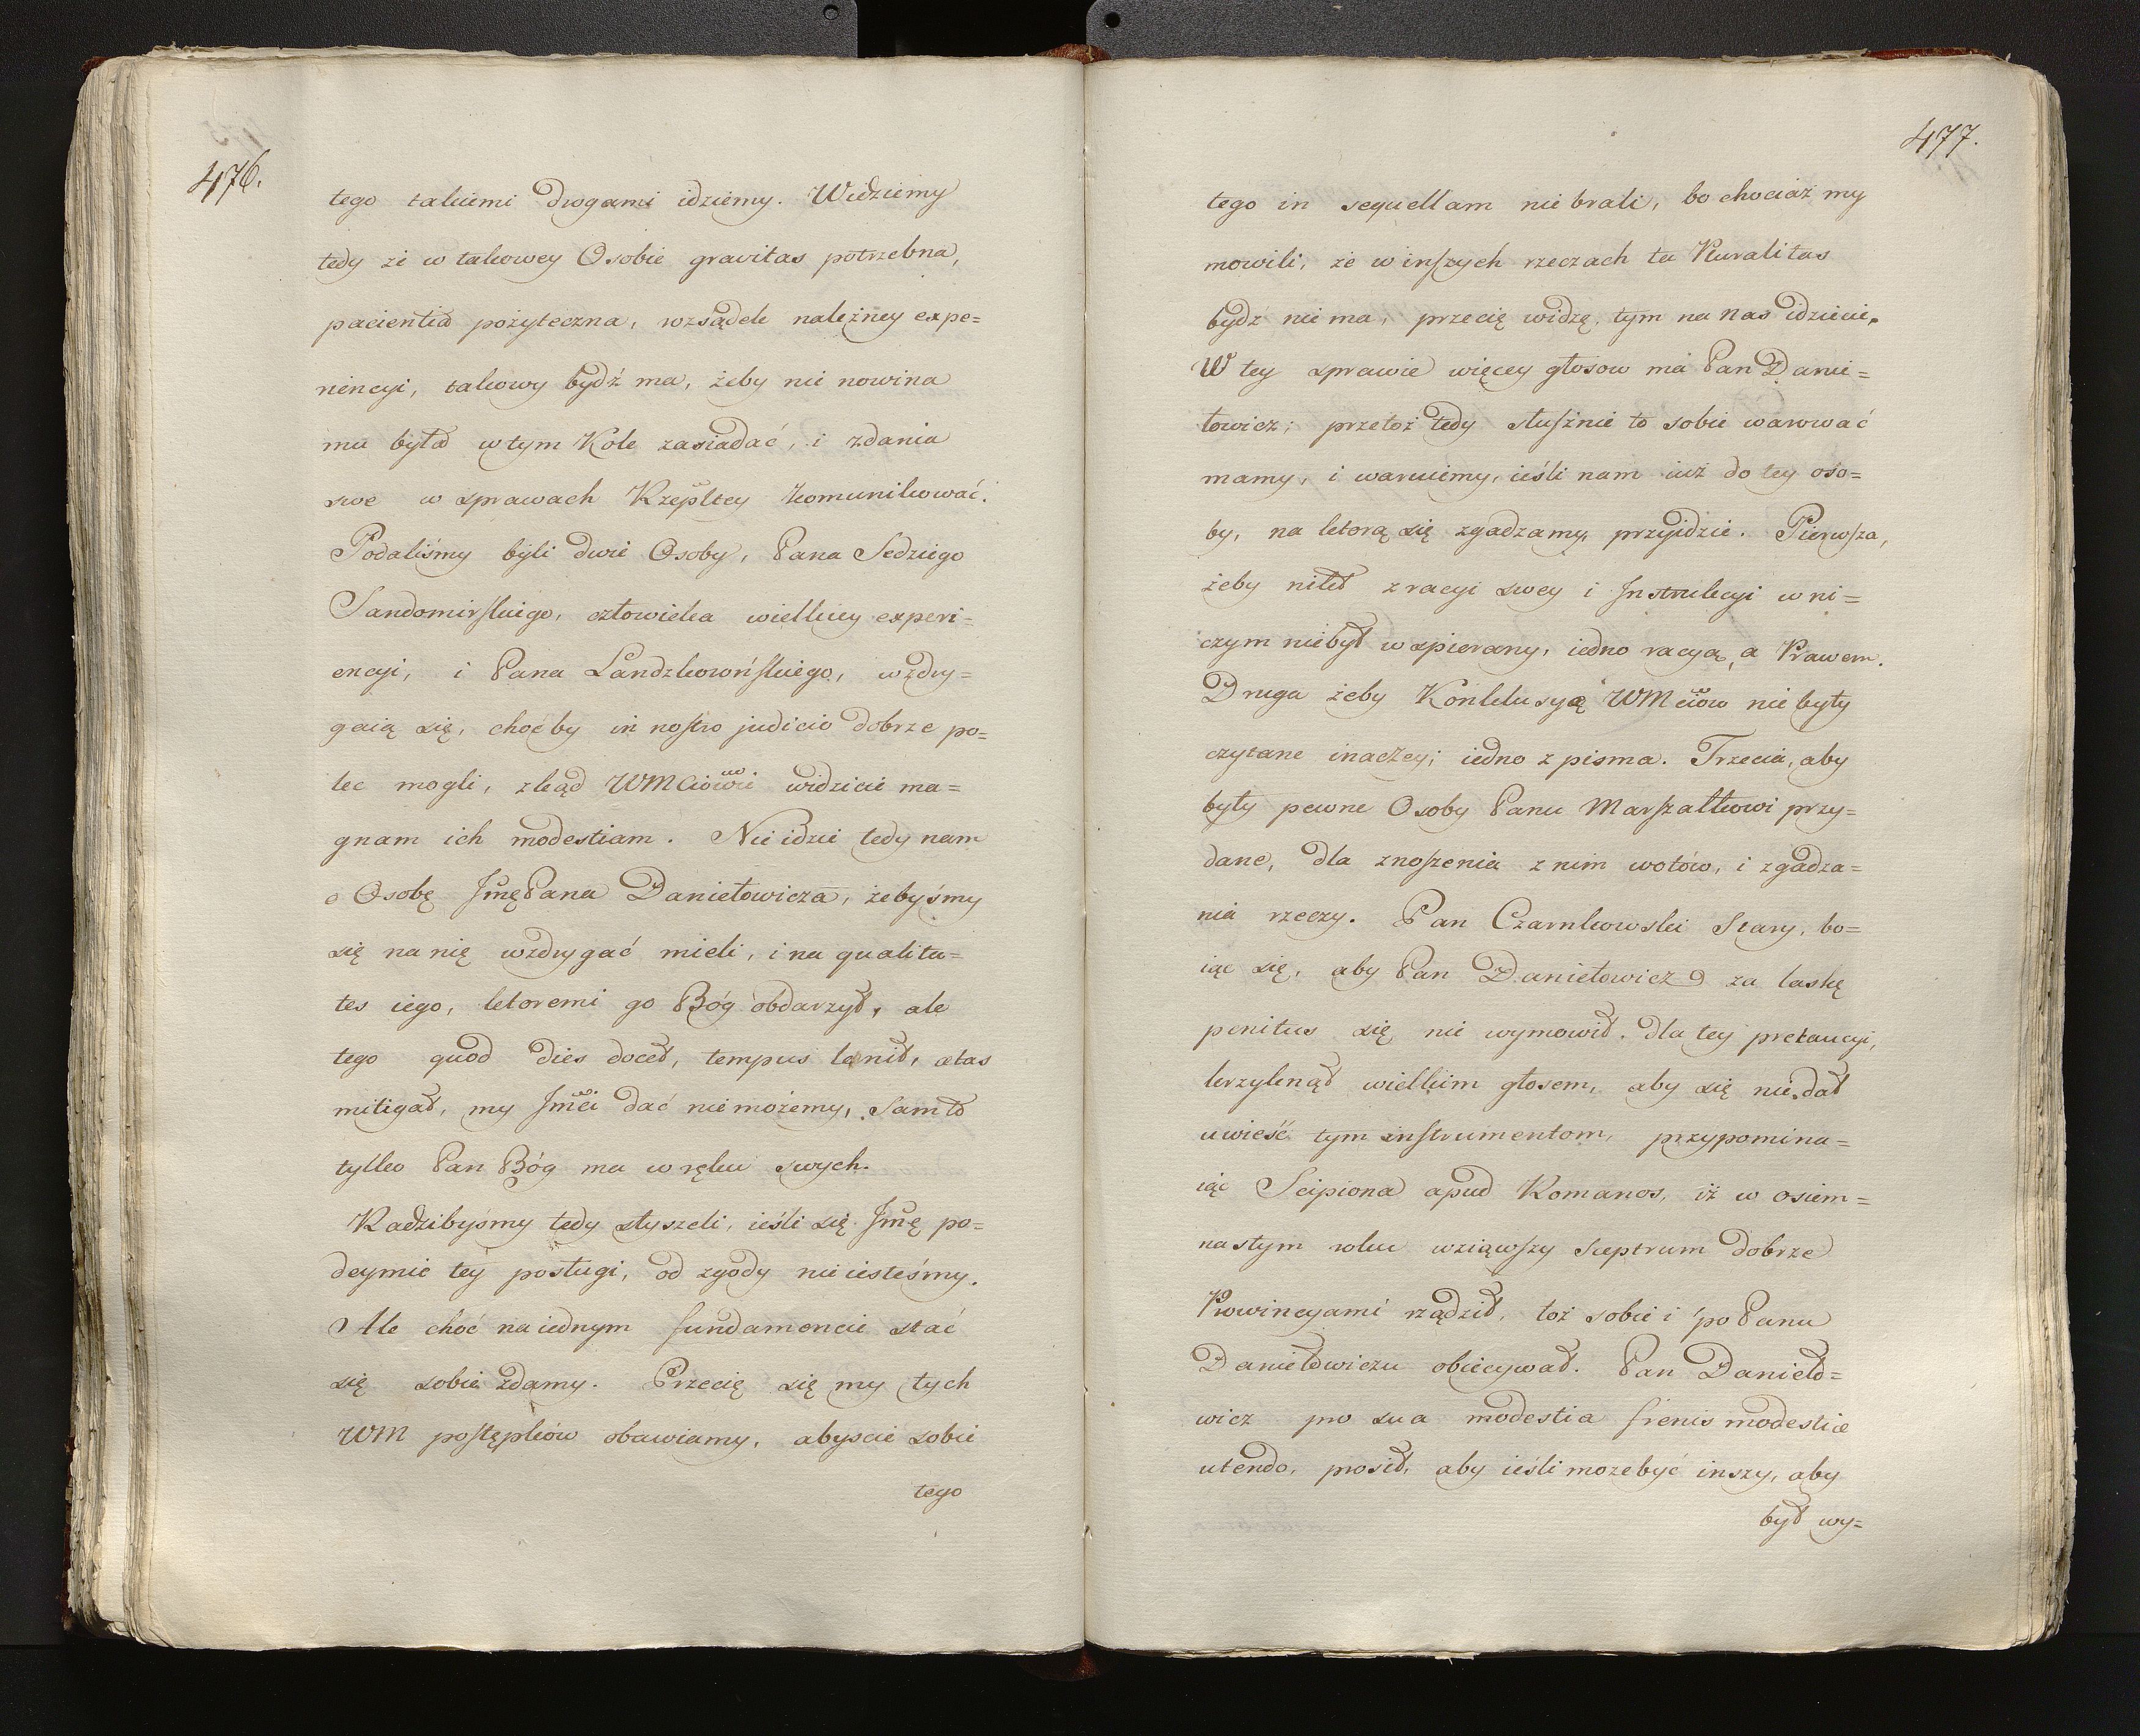 476.
tego takiemi drogami idziemy. Widziemy
tedy że w takowey Osobie gravitas potrzebna,
pacientia pożyteczna, rozsądek należney expe=
riencyi, takowy bydź ma, żeby nie nowina
mu była w tym Kole zasiadać, i zdania
swe w sprawach Rzepltey kommunikować.
Podaliśmy byli dwie Osoby, Pana Sedziego
Sandomirskiego, człowieka wielkiey experi=
encyi, i Pana Landzkorońskiego, wzdry=
gaią się, choćby in nostro judicio dobrze po=
tec mogli, zkąd WMCiowie widzicie ma=
gnam ich modestiam. Nie idzie tedy nam
o Osobę Jmę Pana Daniełowicza, żebyśmy
się na nię wzdrygać mieli, i na qualita=
tes iego, ktoremi go Bóg obdarzył, ale
tego quod dies docet, tempus lenit, ætas
mitigat, my Jmci dać nie możemy, sam to
tylko Pan Bóg ma w ręku swych.
Radzibyśmy tedy słyszeli, ieśli się Jmę po=
deymie tey posługi, od zgody nie iesteśmy.
Ale choć na iednym fundamencie stać
się sobie zdamy. Przecię się my tych
WM postępków obawiamy, abyscie sobie
tego
477.
tego in sequellam nie brali, bo chociaż my
mowili, że w inszych rzeczach ta Pluralitas
bydź nie ma, przecię widzę, tym na nas idziecie.
W tey sprawie więcey głosow ma Pan Danie=
łowicz; przetoż tedy słusznie to sobie warować
mamy, i waruiemy, ieśli nam iuż do tey oso=
by, na ktorą się zgadzamy, przyidzie. Pierwsza,
żeby nikt z racyi swey i Instrukcyi w ni=
czym nie był wspierany, iedno racyą, a Prawem.
Druga żeby Konklusyą WMciow nie były
czytane inaczey; iedno z pisma. Trzecia, aby
były pewne Osoby Panu Marszałkowi przy=
dane, dla znoszenia z nim wotów, i zgadza=
nia rzeczy. Pan Czarnkowski Stary, bo=
iąc się, aby Pan Daniełowicz za laskę
penitus się nie wymowił, dla tey pretaucyi,
krzyknął wielkim głosem, aby się nie dał
uwieść tym instrumentom, przypomina=
iąc Scipiona apud Romanos, iż w osiem=
nastym roku wziąwszy Sceptrum dobrze
Prowincyami rządził, toż sobie i po Panu
Daniełowiczu obiecywał. Pan Danieło=
wicz pro sua modestia frenis modestiæ
utendo, prosił, aby ieśli moze być inszy, aby
był wy=